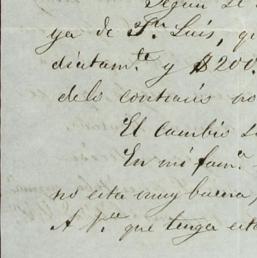 Segun
ya de Sn. Luis, qu
diatamte. y $200.
de lo contrario no
El cambio
En mi fama.
no esta muy buena,
A Va. que tenga esta